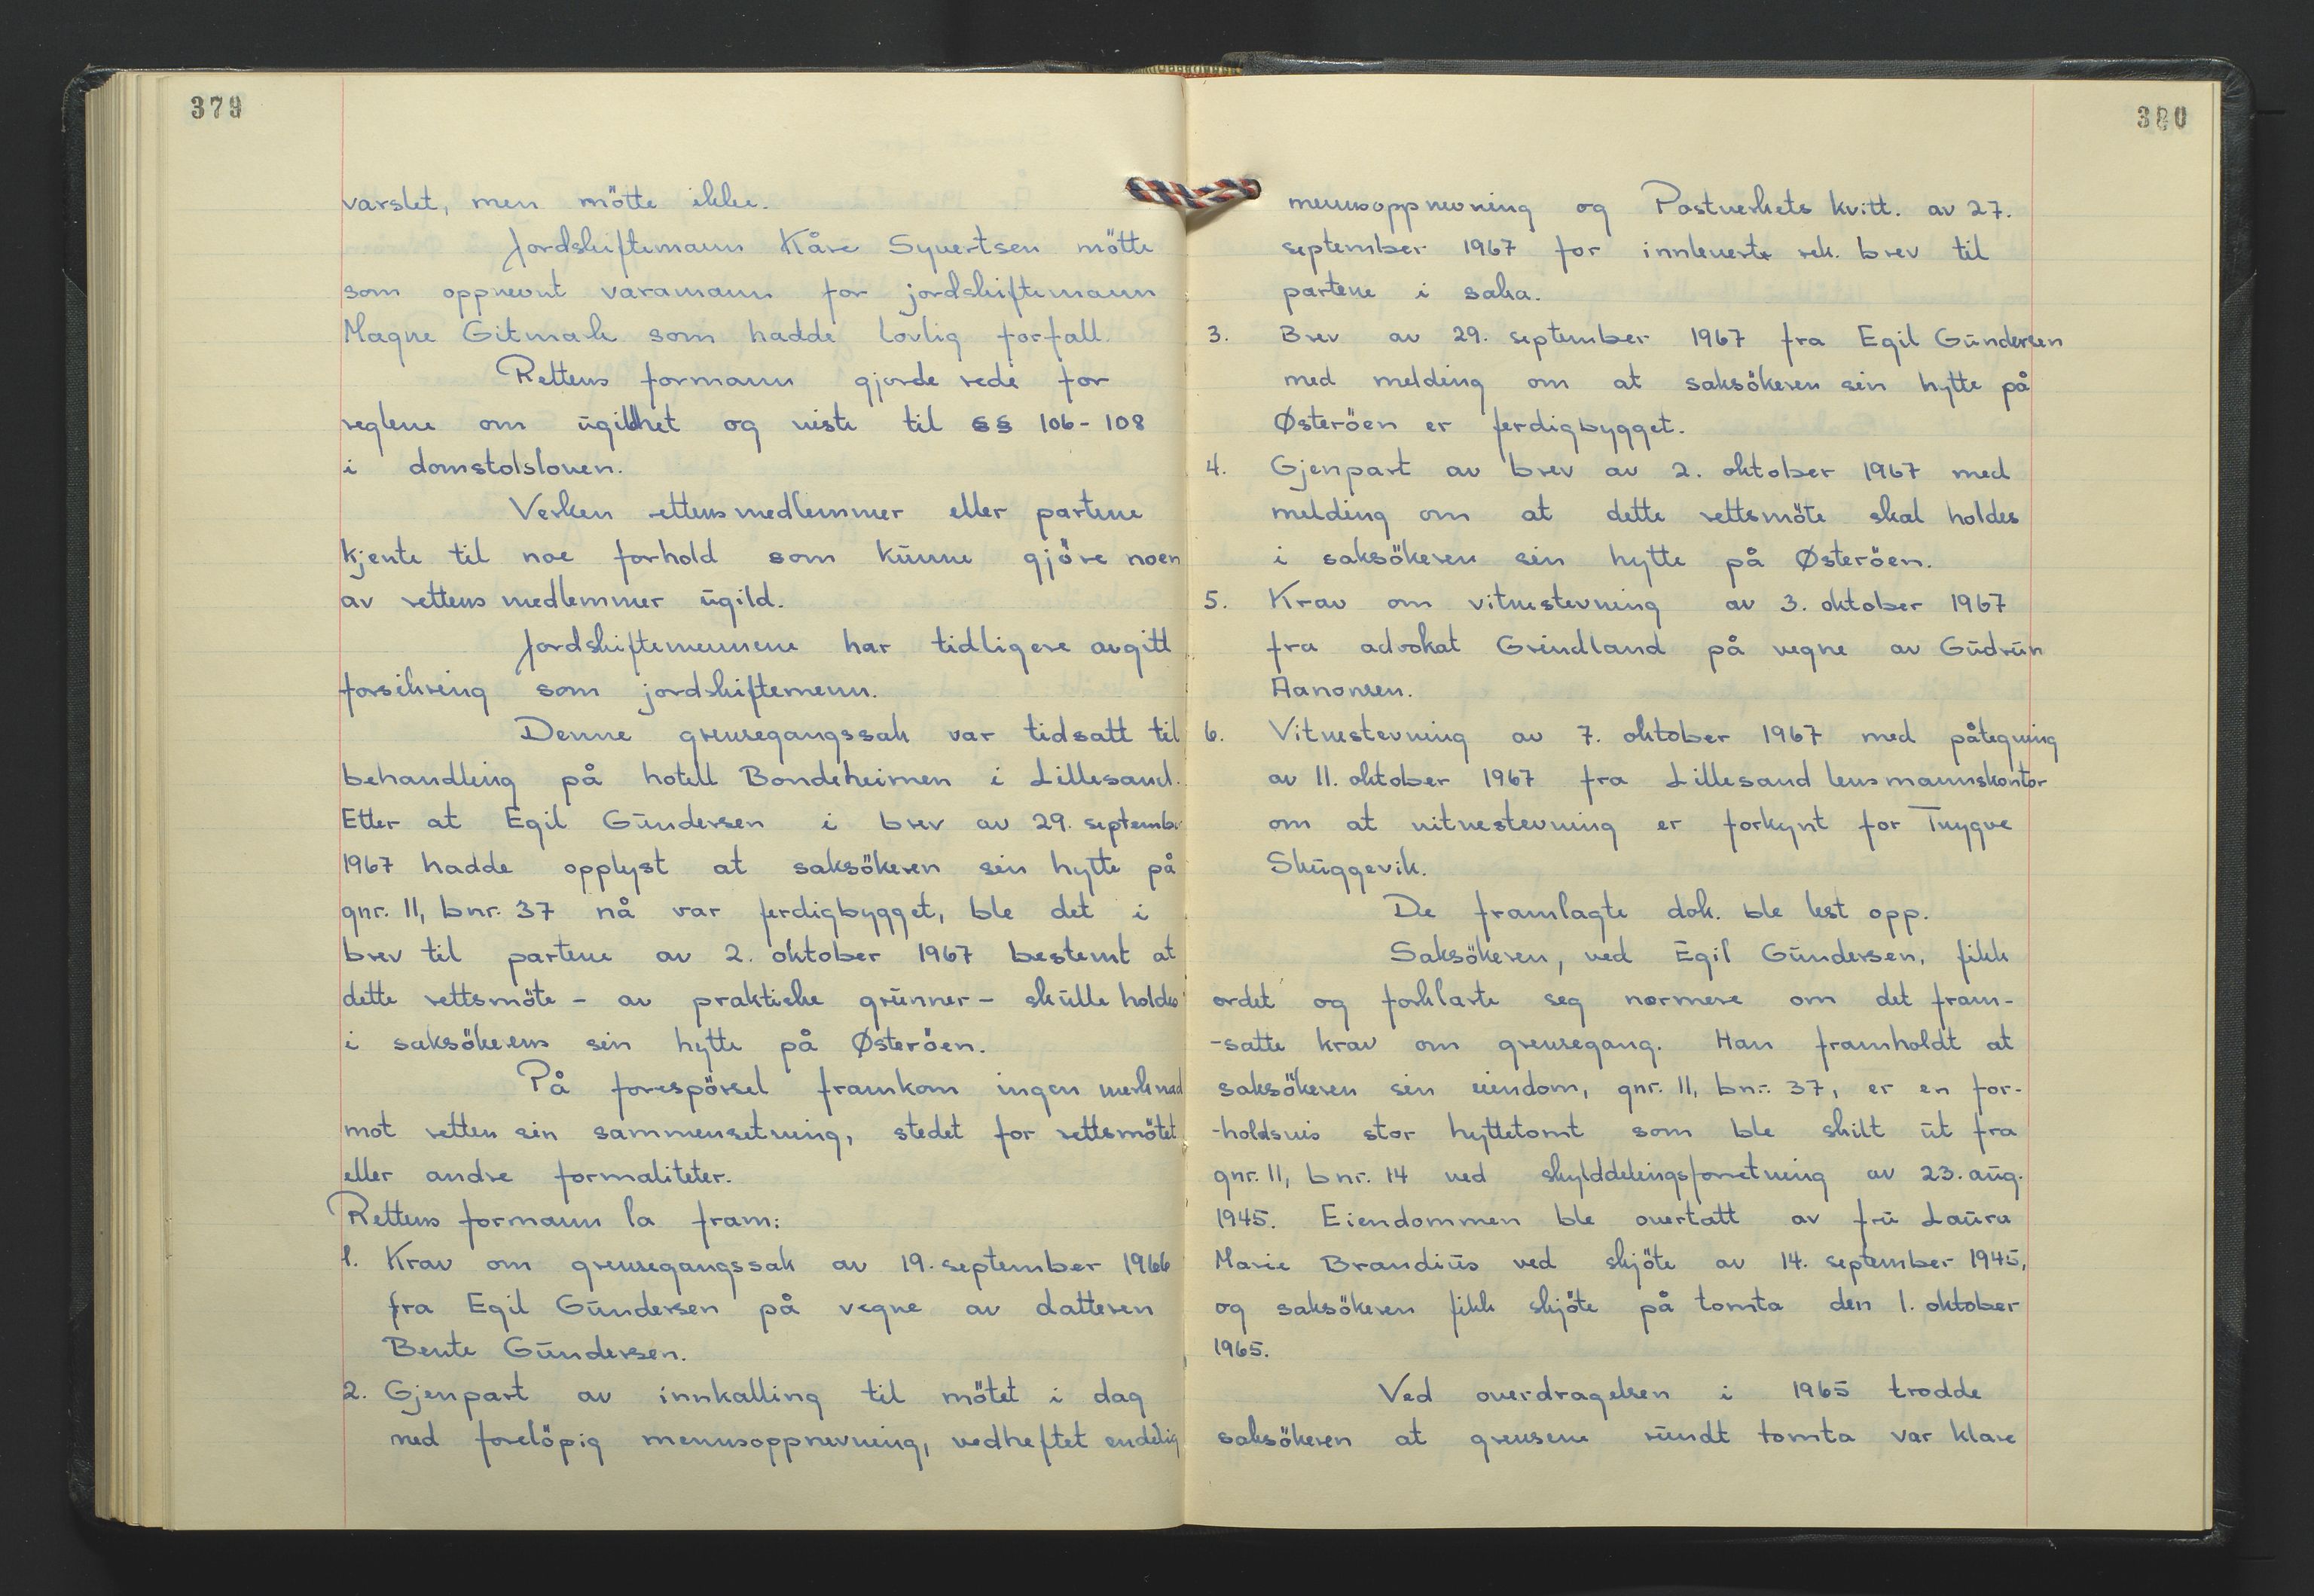 379
varslet, men mötte ikke.
Jordskiftemann Kåre Syvertsen mötte
som oppnevnt varamann for jordskiftemann
Magne Gitmark som hadde lovlig forfall.
Rettens formann gjorde rede for
reglene om ugildhet og viste til §§ 106-108
i domstolsloven.
Verken rettens medlemmer eller partene
kjente til noe forhold som kunne gjöre noen
av rettens medlemmer ugild.
Jordskiftemennene har tidligere avgitt
forsikring som jordskiftemenn.
Denne grensegangssak var tidsatt til
behandling på hotell Bondeheimen i Lillesand.
Etter at Egil Gundersen i brev av 29. septembr
1967 hadde opplyst at saksökeren sin hytte på
gnr. 11, bnr. 37 nå var ferdigbygget, ble det i
brev til partene av 2. oktober 1967 bestemt at
dette rettsmöte - av praktiske grunner - skulle holdes
i saksökerens sin hytte på Østeröen.
På forespörsel framkom ingen merknad
mot retten sin sammensetning, stedet for rettsmötet
eller andre formaliteter.
Rettens formann la fram:
1. Krav om grensegangssak av 19. september 1966
fra Egil Gundersen på vegne av datteren
Bente Gundersen.
2. Gjenpart av innkalling til mötet i dag
med forelöpig mennsoppnevning, vedheftet endelig
380
mennsoppnevning og Postverkets kvitt. av 27.
september 1967 for innleverte rek. brev til
partene i saka.
3. Brev av 29. september 1967 fra Egil Gundersen
med melding om at saksökeren sin hytte på
Østeröen er ferdigbygget.
4. Gjenpart av brev av 2. oktober 1967 med
melding om at dette rettsmöte skal holdes
i saksökeren sin hytte på Østeröen.
5. Krav om vitnestevning av 3. oktober 1967
fra advokat Grindland på vegne av Gudrun
Aanonsen.
6. Vitnestevning av 7. oktober 1967 med påtegning
av 11. oktober 1967 fra Lillesand lensmannskontor
om at vitnestevning er forkynt for Trygve
Skuggevik.
De framlagte dok. ble lest opp.
Saksökeren, ved Egil Gundersen, fikk
ordet og forklarte seg nærmere om det fram-
-satte krav om grensegang. Han framholdt at
saksökeren sin eiendom, gnr. 11, bnr. 37, er en for-
-holdsvis stor hyttetomt som ble skilt ut fra
gnr. 11, bnr. 14 ved skylddelingsforretning av 23. aug.
1945. Eiendommen ble overtatt av fru Laura
Marie Brandius ved skjöte av 14. september 1945,
og saksökeren fikk skjöte på tomta den 1. oktober
1965.
Ved overdragelsen i 1965 trodde
saksökeren at grensene rundt tomta var klare